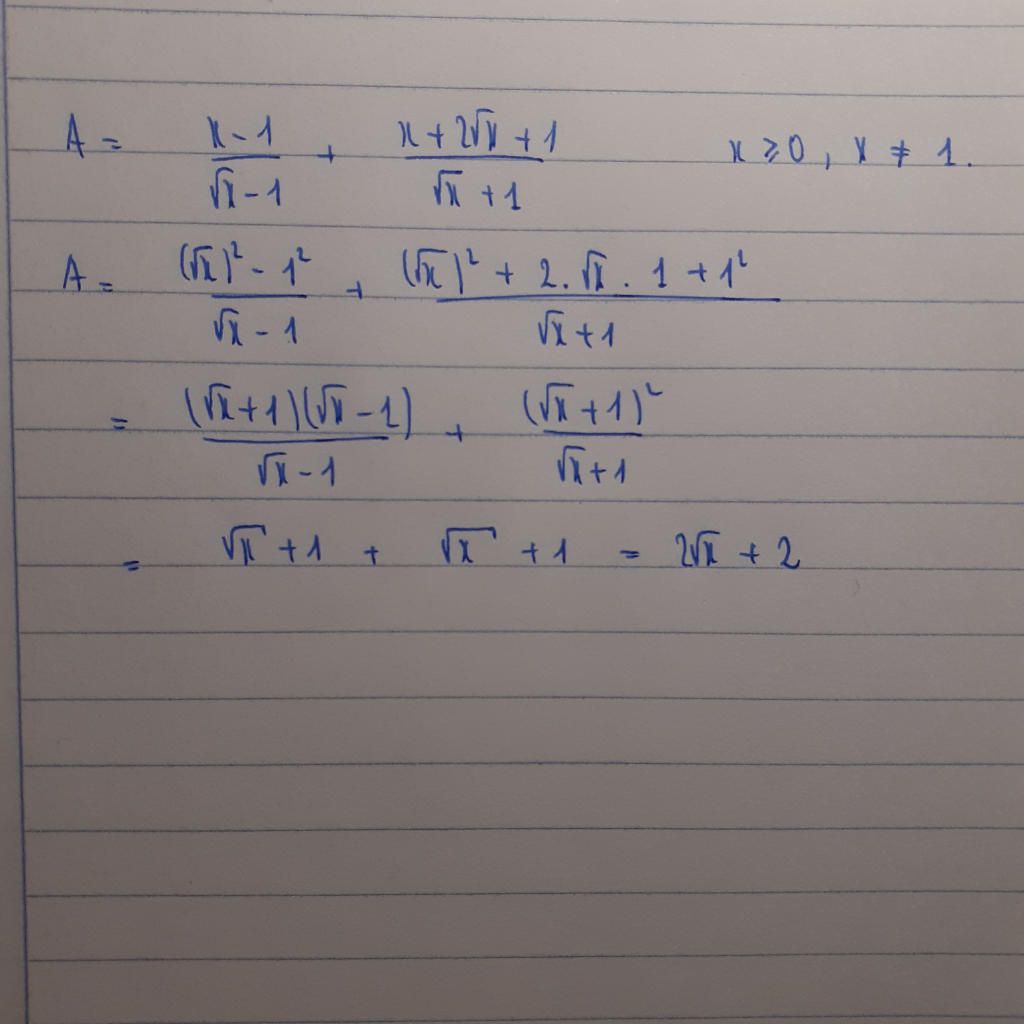 A = \frac{x-1}{\sqrt{x}-1} + \frac{x+2\sqrt{x}+1}{\sqrt{x}+1} x ⩾ 0, x ≠ 1.
A = \frac{(\sqrt{x})^2 - 1^2}{\sqrt{x}-1} + \frac{(\sqrt{x})^2 + 2.\sqrt{x}.1 + 1^2}{\sqrt{x}+1}
= \frac{(\sqrt{x}+1)(\sqrt{x}-1)}{\sqrt{x}-1} + \frac{(\sqrt{x}+1)^2}{\sqrt{x}+1}
= \sqrt{x} + 1 + \sqrt{x} + 1 = 2\sqrt{x} + 2